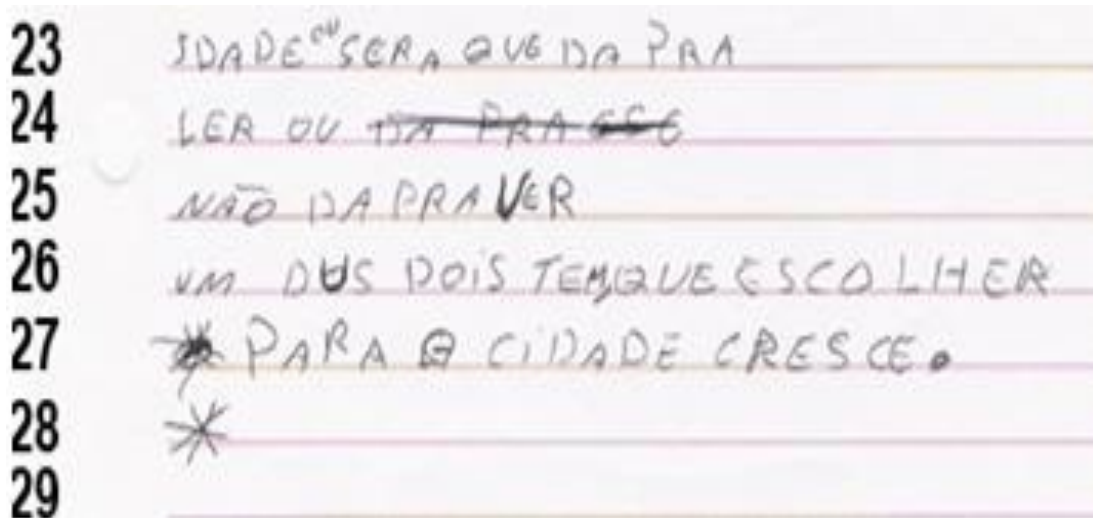 23 IDADE OU SERA QUE DA PRA
24 LER OU DA PRA
25 NÃO DA PRA VER
26 UM DUS DOIS TEM QUE ESCOLHER
27 PARA A CIDADE CRESCE.
28
29